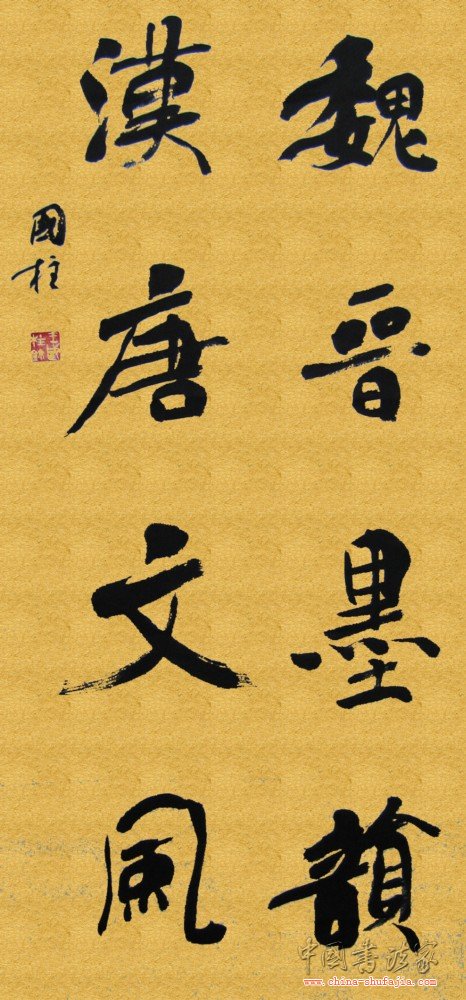 魏晋墨韻
漢唐文風
國柱
中国书法家
www.china-shufajia.com